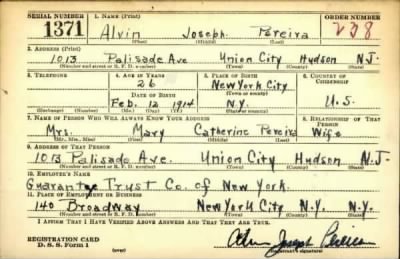 SERIAL NUMBER 1. NAME (Print) ORDER NUMBER
1371 Alvin Joseph Pereira 238
(First) (Middle) (Last)
2. ADDRESS (Print)
1013 Palisade Ave Union City Hudson N.J.
(Number and street or R. F. D. number) (Town) (County) (State)
3. TELEPHONE 4. AGE IN YEARS 5. PLACE OF BIRTH 6. COUNTRY OF CITIZENSHIP
26 New York City
DATE OF BIRTH (Town or county)
Feb. 12 1914 N.Y. U.S.
(Exchange) (Number) (Mo.) (Day) (Yr.) (State or country)
7. NAME OF PERSON WHO WILL ALWAYS KNOW YOUR ADDRESS 8. RELATIONSHIP OF THAT PERSON
Mrs. Mary Catherine Pereira Wife
(Mr., Mrs., Miss) (First) (Middle) (Last)
9. ADDRESS OF THAT PERSON
1013 Palisade Ave. Union City Hudson N.J.
(Number and street or R. F. D. number) (Town) (County) (State)
10. EMPLOYER'S NAME
Guarantee Trust Co. of New York.
11. PLACE OF EMPLOYMENT OR BUSINESS
140 Broadway New York City N.Y. N.Y.
(Number and street or R. F. D. number) (Town) (County) (State)
I AFFIRM THAT I HAVE VERIFIED ABOVE ANSWERS AND THAT THEY ARE TRUE.
REGISTRATION CARD
D. S. S. Form 1 (over) Alvin Joseph Pereira
(Registrant's signature)